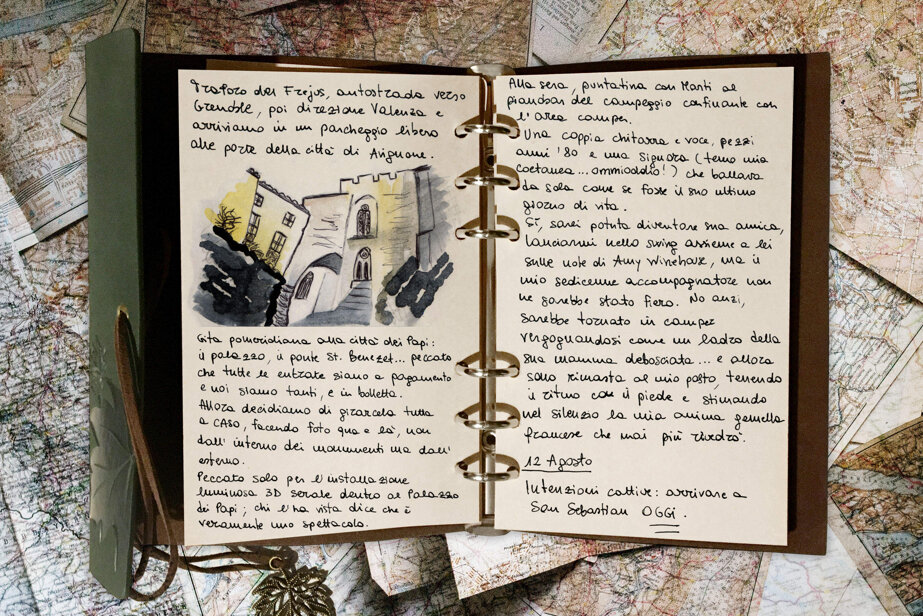 Traforo del Frejus, autostrada verso
Grenoble, poi direzione Valenza e
arriviamo in un parcheggio libero
alle porte della città di Avignone.
Gita pomeridiana alla città dei Papi:
il palazzo, il ponte St. Benezet... peccato
che tutte le entrate siano a pagamento
e noi siamo tanti, e in bolletta.
Allora decidiamo di girarcela tutta
a CASO, facendo foto qua e là, non
dall'interno dei monumenti ma dall'
esterno.
Peccato solo per l'installazione
luminosa 3D serale dentro al Palazzo
dei Papi; chi l'ha vista dice che è
veramente uno spettacolo.
Alla sera, puntatina con Marti al
pianobar del campeggio confinante con
l'area camper.
Una coppia chitarra e voce, pezzi
anni '80 e una signora (temo mia
coetanea... ommioddio!) che ballava
da sola come se fosse il suo ultimo
giorno di vita.
Sì, sarei potuta diventare sua amica,
lanciarmi nello swing assieme a lei
sulle note di Amy Winehouse, ma il
mio sedicenne accompagnatore non
ne sarebbe stato fiero. No anzi,
sarebbe tornato in camper
vergognandosi come un ladro della
sua mamma debosciata... e allora
sono rimasta al mio posto, tenendo
il ritmo con il piede e stimando
nel silenzio la mia anima gemella
francese che mai più rivedrò.
12 Agosto
Intenzioni cattive: arrivare a
San Sebastian OGGI.